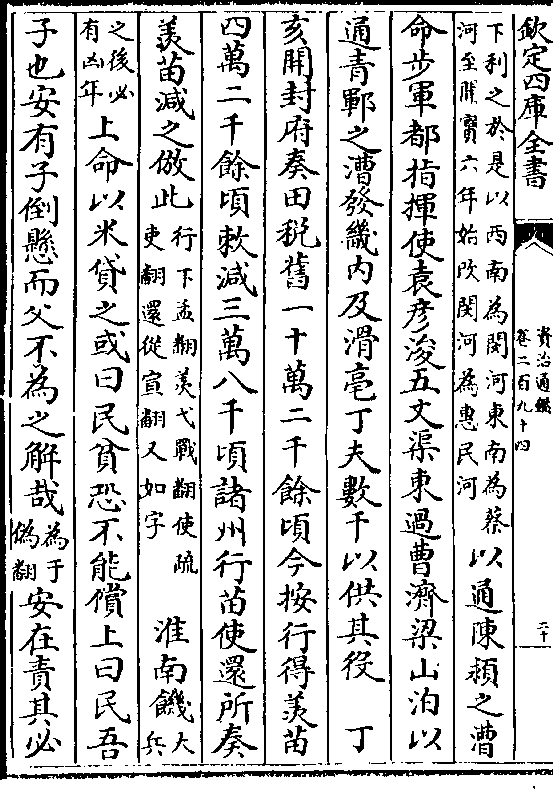 欽定四庫全書
資治通鑑
卷二百九十四
二十
下利之於是以西南為閔河東南為蔡
河至開寶六年始改閔河為惠民河
以通陳潁之漕
命步軍都指揮使袁彥浚五丈渠東過曹濟梁山泊以
通青鄆之漕發畿内及滑亳丁夫數千以供其役　丁
亥開封府奏田税舊一十萬二千餘頃今按行得羡苗
四萬二千餘頃敕減三萬八千頃諸州行苗使還所奏
羡苗減之倣此
行下孟翻羡弋戰翻使疏
吏翻還從宣翻又如字
淮南饑
大兵
之後必
有凶年
上命以米貸之或曰民貧恐不能償上曰民吾
子也安有子倒懸而父不為之解哉
為于
偽翻
安在責其必